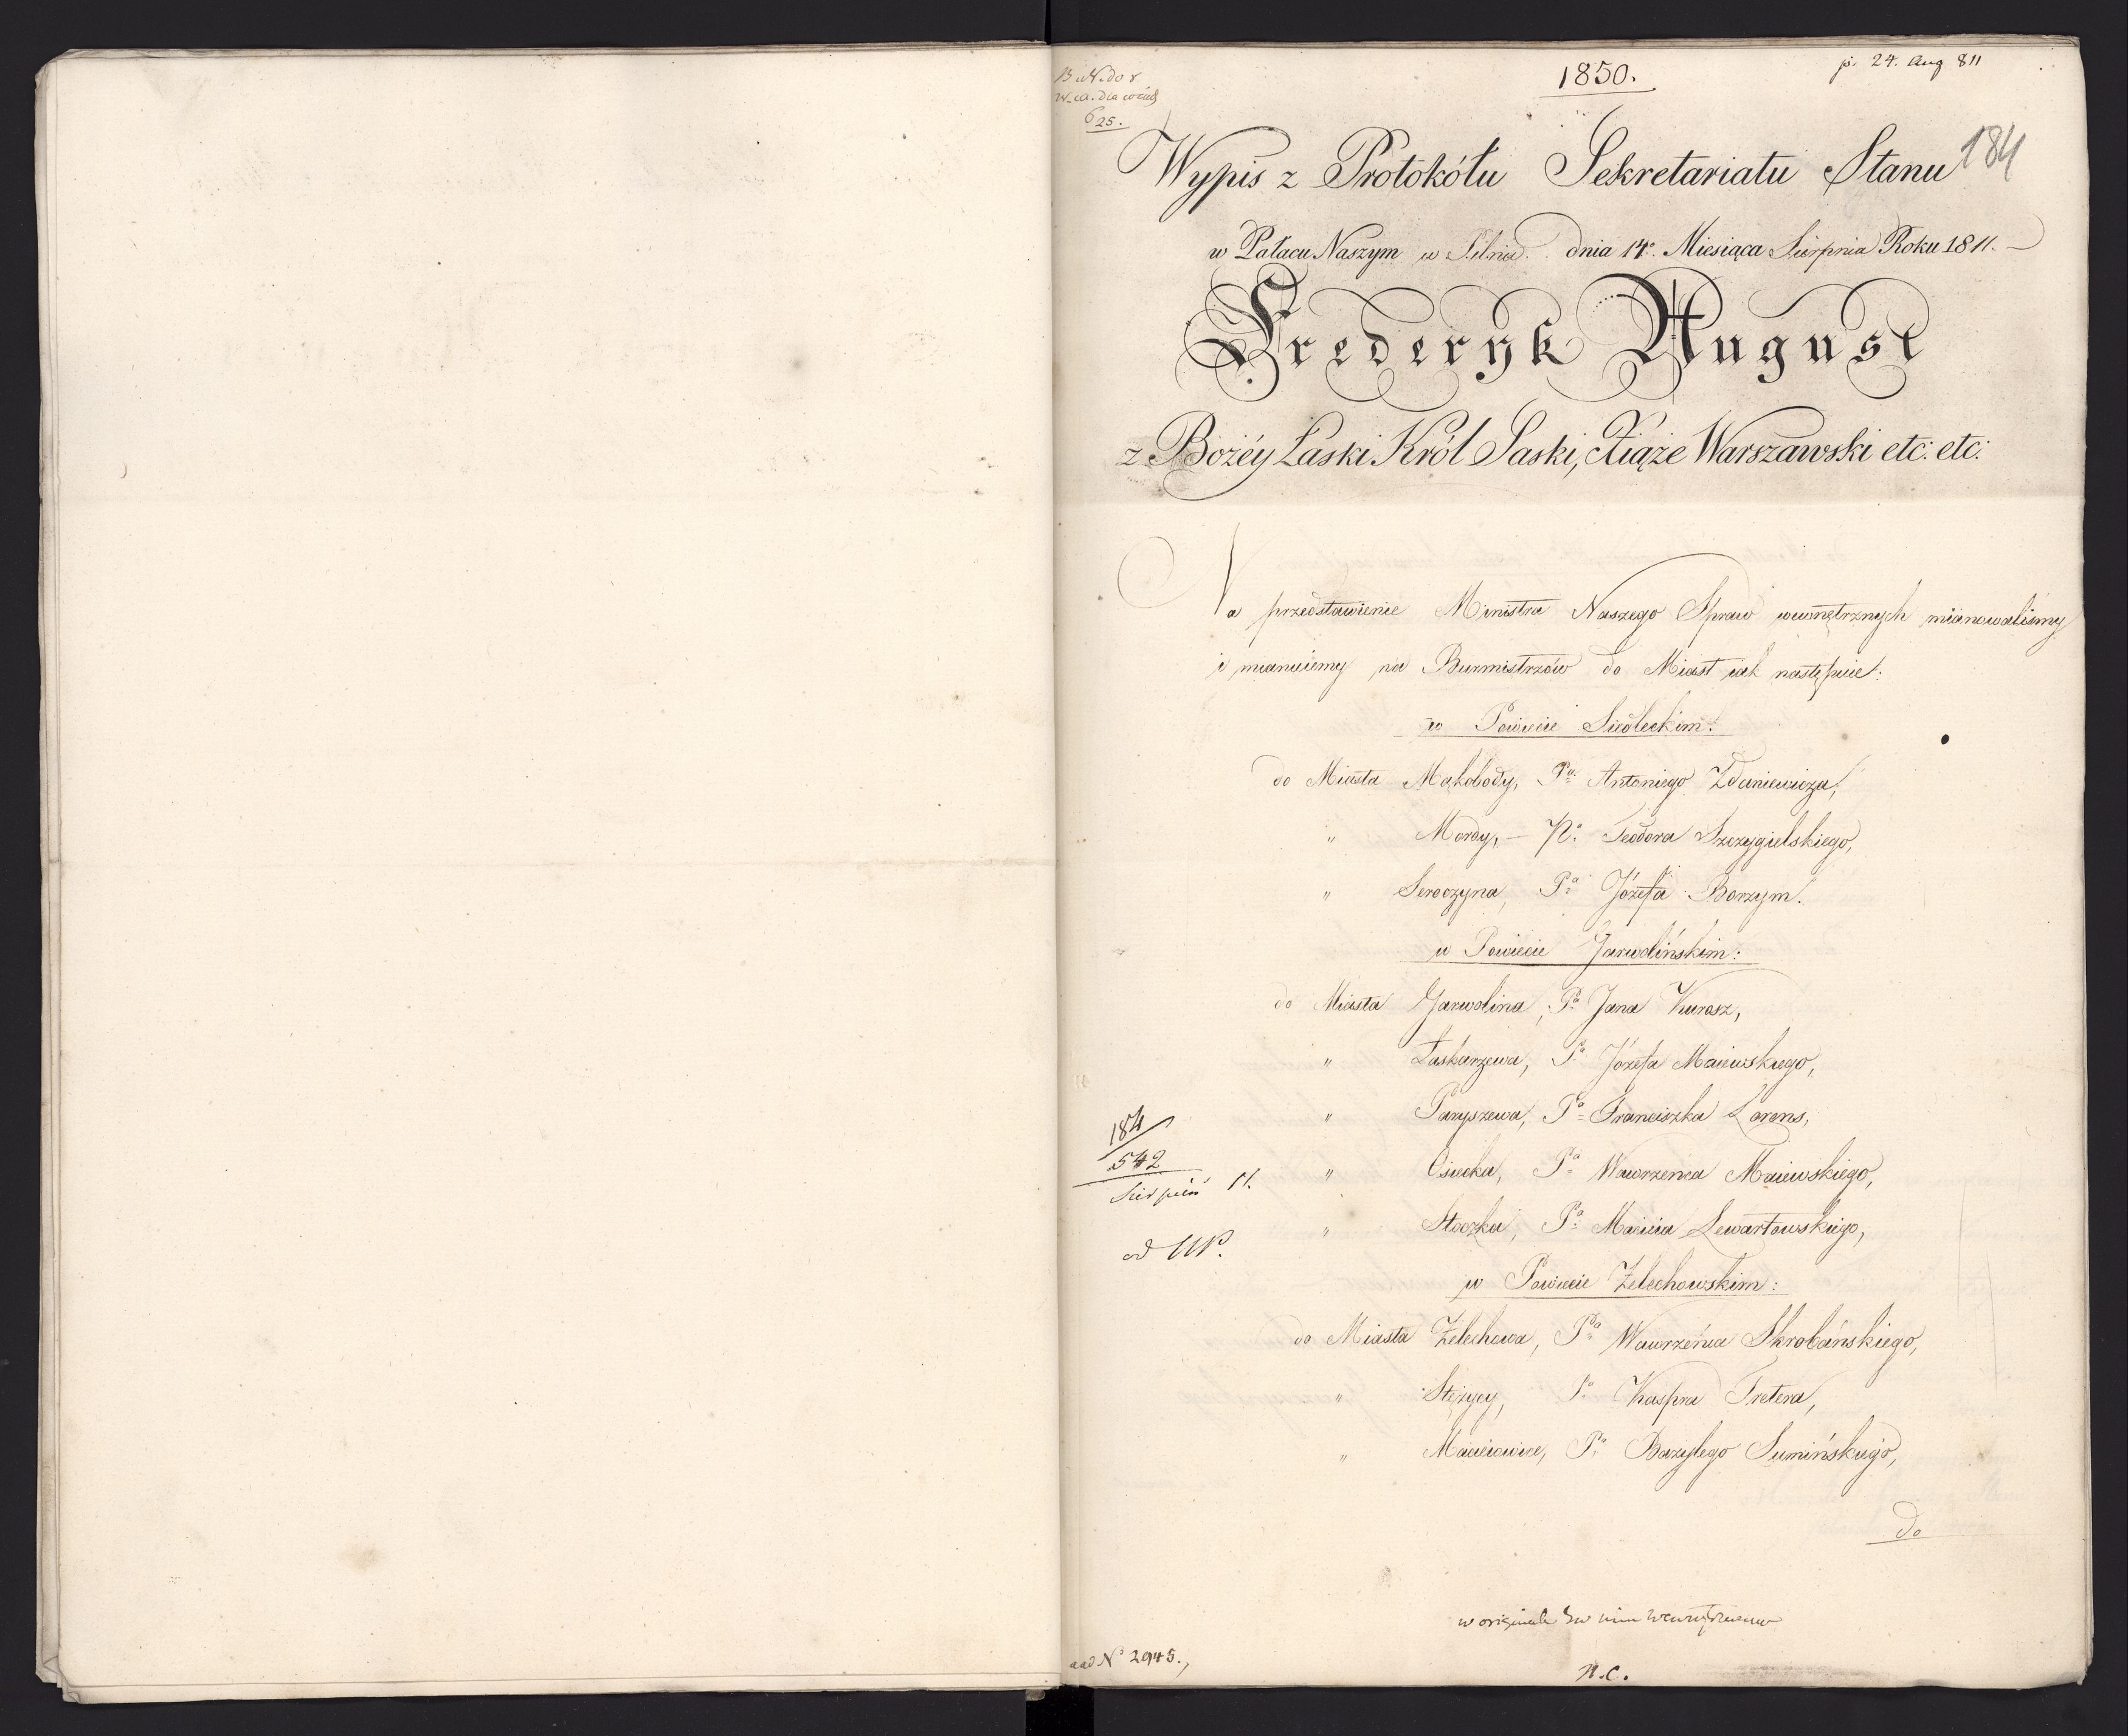 1850.
p. 24. Aug 811
625.
184
Wypis z Protokółu Sekretariatu Stanu
w Pałacu Naszym w Pilnic. dnia 14o. Miesiąca Sierpnia Roku 1811. —
Frederyk August
z Bożéy Łaski Król Saski, Xiąże Warszawski etc: etc:
Na przedstawienie Ministra Naszego Spraw wewnętrznych mianowaliśmy
i mianuiemy na Burmistrzów do Miast iak następuie:
w Powiecie Siedleckim:
do Miasta Mokobody, Pa. Antoniego Zdaniewicza,
" Mordy, — Pa. Teodora Szczygielskiego,
" Seroczyna, Pa. Józefa Borzym.
w Powiecie Garwolińskim:
do Miasta Garwolina, Pa. Jana Kurasz,
" Łaskarzewa, Pa. Józefa Maiewskiego,
" Paryszewa, Pa. Franciszka Lorens,
" Osiecka, Pa. Wawrzeńca Maiewskiego,
" Stoczka, Pa. Macieia Lewartowskiego,
w Powiecie Żelechowskim:
do Miasta Żelechowa, Pa. Wawrzeńca Skrobańskiego,
" Stężycy, Pa. Kaspra Tretera,
" Macieiowice, Pa. Bazylego Sumińskiego,
do
184
542
Sierpień 11.
od
w originale
aad No 2945.,
N.C.